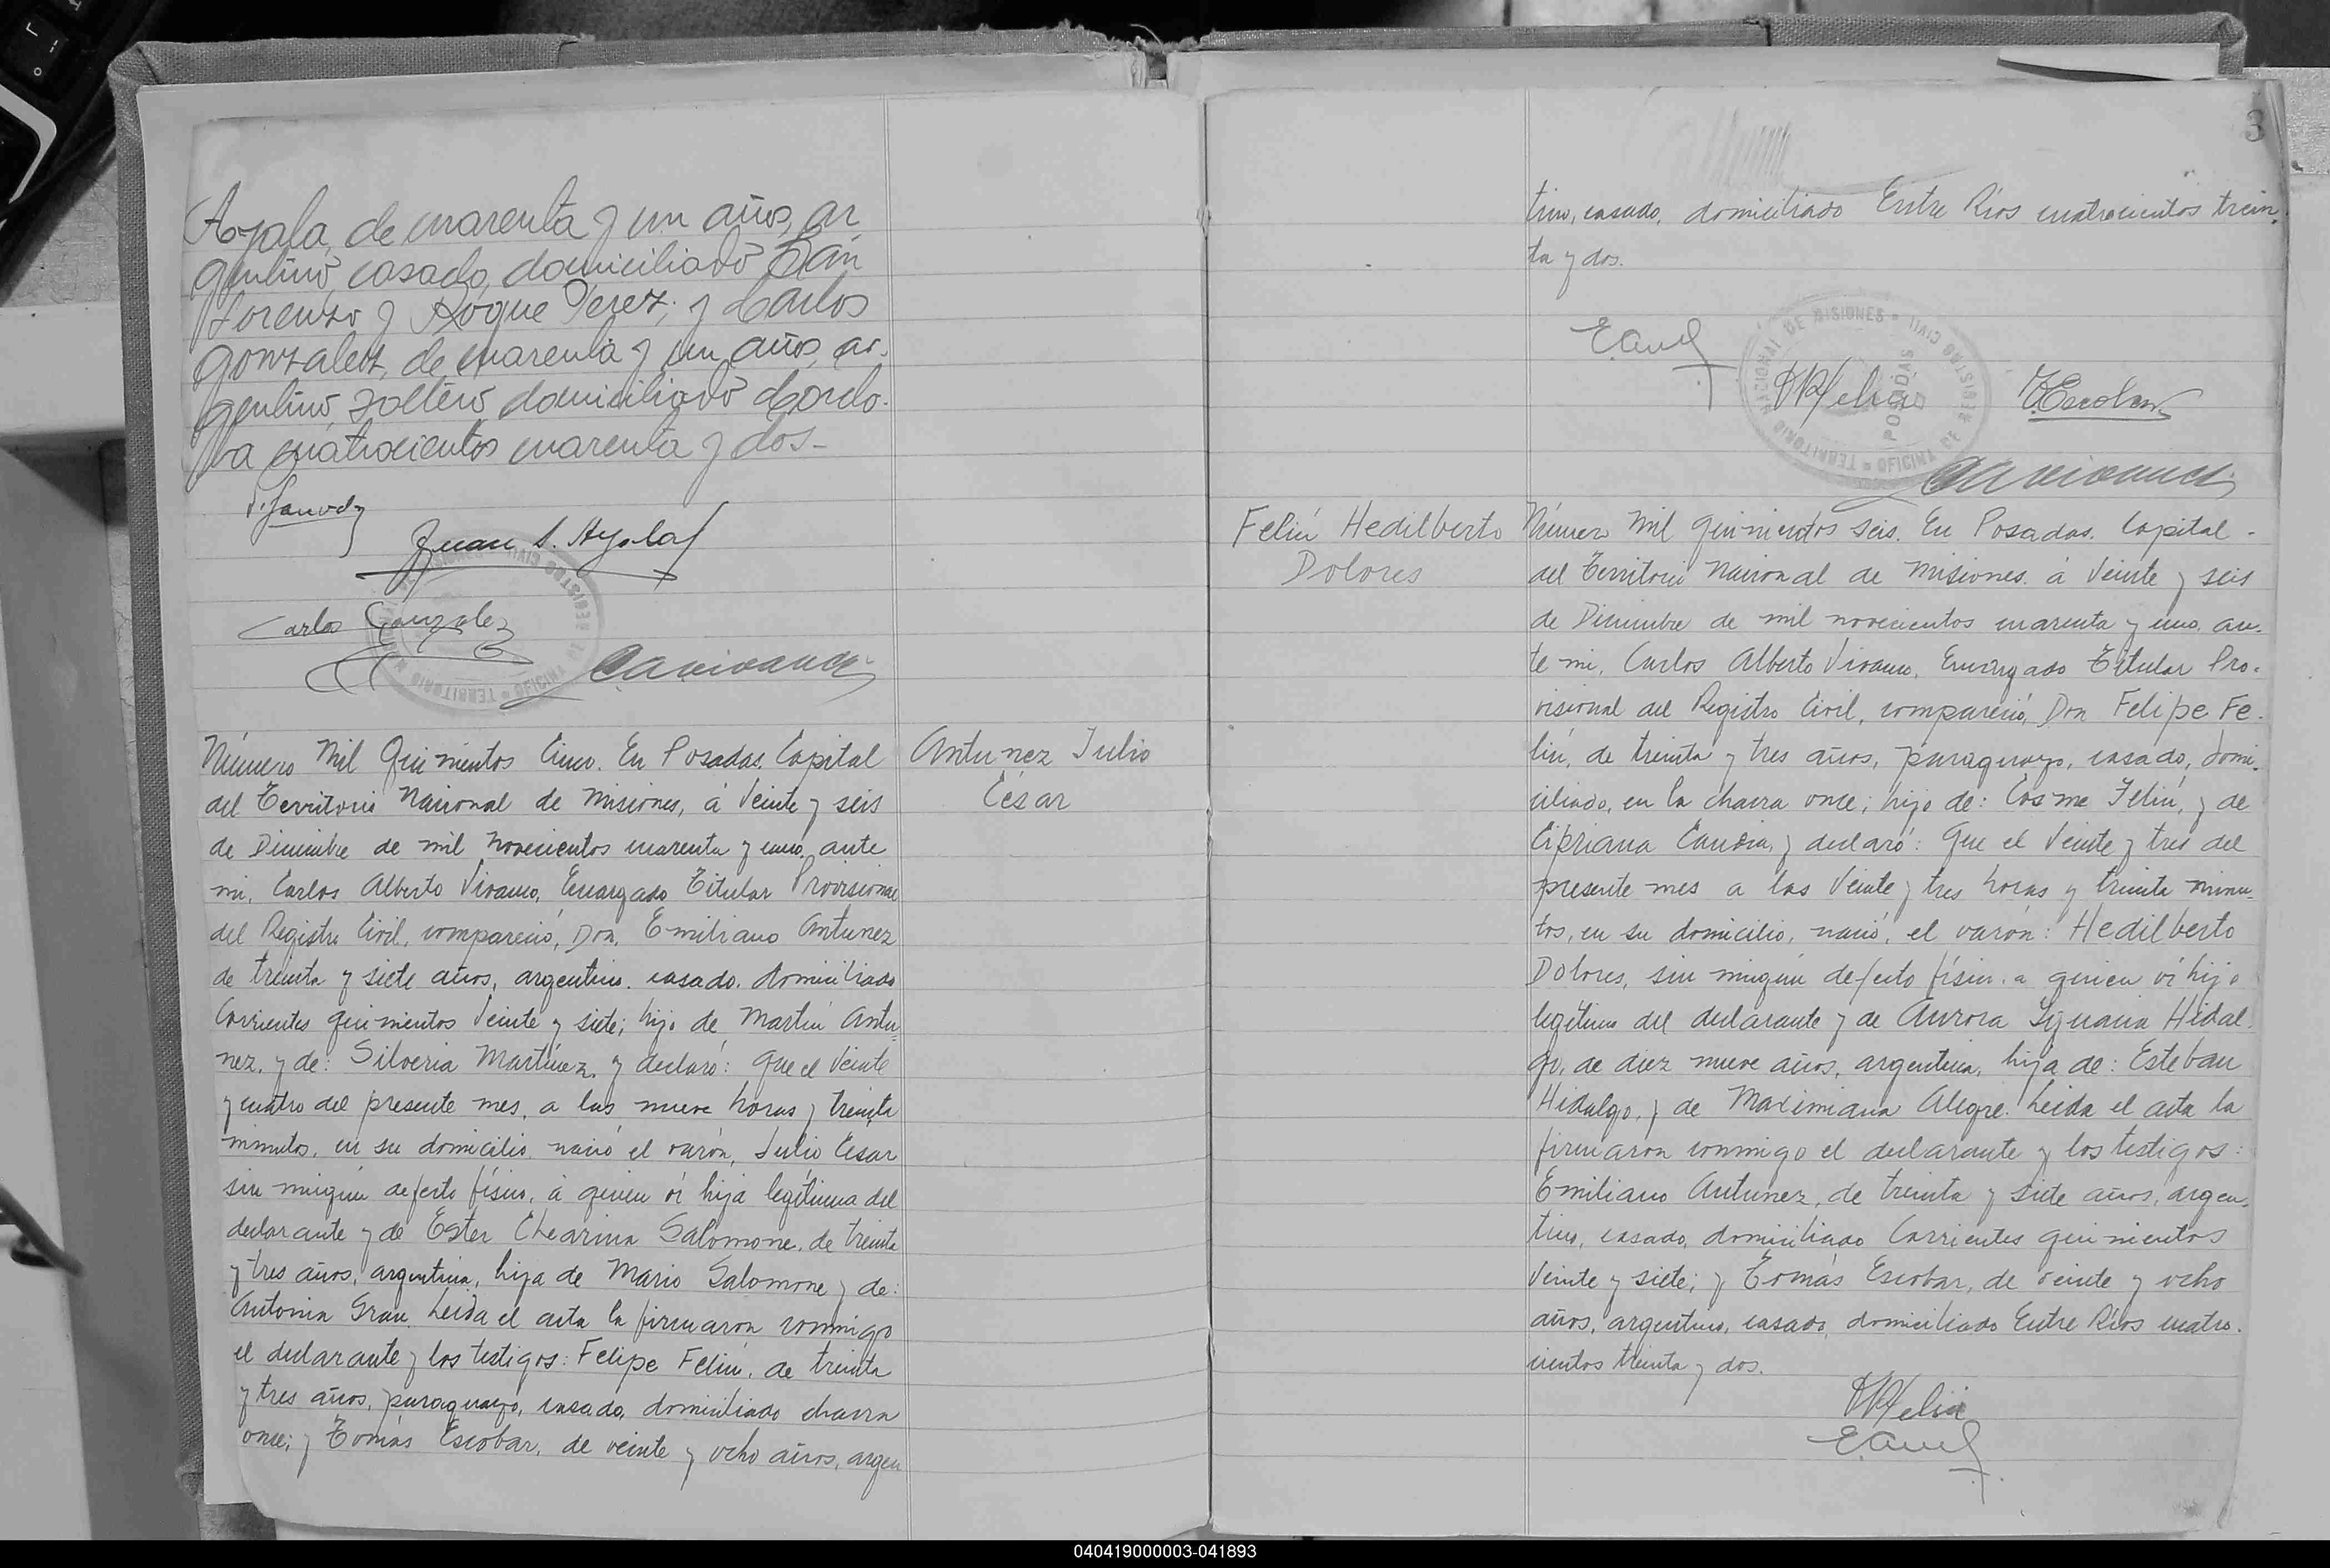 Ayala, de cuarenta y un años, ar
gentino, casado, domiciliado San
Lorenzo y Roque Perez; y Carlos
Gonzalez, de cuarenta y un años, ar-
gentino, soltero domiciliado Cordo-
ba cuatrocientos cuarenta y dos-
Juan S. Ayala
Carlos Gonzalez
Número Mil Quinientos Cinco. En Posadas, Capital
del Territorio Nacional de Misiones, á Veinte y seis
de Diciembre de mil novecientos cuarenta y uno, ante
mi, Carlos Alberto Vivanco, Encargado Titular Provisional
del Registro Civil, compareció, Don, Emiliano Antunez
de treinta y siete años, argentino, casado, domiciliado
Corrientes quinientos Veinte y siete; hijo de, Martín Antu-
nez, y de: Silveria Martínez, y declaró: Que el Veinte
y cuatro del presente mes, a las nueve horas y treinta
minutos, en su domicilio, nació el varón, Julio César
sin ningún defecto físico, á quien ví hija legítima del
declarante y de Ester Chearina Salomone, de treinta
y tres años, argentina, hija de Mario Salomone y de:
Antonia Grau. Leída el acta la firmaron conmigo
el declarante y los testigos: Felipe Feliú, de treinta
y tres años, paraguayo, casado, domiciliado chacra
once; y Tomás Escobar, de veinte y ocho años, argen
Antunez Julio
César
3
tino, casado, domiciliado Entre Ríos cuatrocientos trein-
ta y dos.
TERRITORIO NACIONAL DE MISIONES
OFICINA DE REGISTRO CIVIL
POSADAS
TEscobar
Feliú Hedilberto
Dolores
Número Mil Quinientos seis. En Posadas, Capital -
del Territorio Nacional de Misiones, á Veinte y seis
de Diciembre de mil novecientos cuarenta y uno, an-
te mi, Carlos Alberto Vivanco, Encargado Titular Pro-
visional del Registro Civil, compareció, Don Felipe Fe-
liú, de treinta y tres años, paraguayo, casado, domi-
ciliado, en la chacra once; hijo de: Cosme Feliú, y de
Cipriana Candia, y declaró: Que el Veinte y tres del
presente mes a las Veinte y tres horas y treinta minu-
tos, en su domicilio, nació, el varón: Hedilberto
Dolores, sin ningún defecto físico, a quien ví hijo
legítimo del declarante y de Aurora Ignacia Hidal-
go, de diez nueve años, argentina, hija de: Esteban
Hidalgo, y de Maximiana Alegre. Leída el acta la
firmaron conmigo el declarante y los testigos:
Emiliano Antunez, de treinta y siete años, argen-
tino, casado, domiciliado Corrientes quinientos
Veinte y siete; y Tomás Escobar, de veinte y ocho
años, argentino, casado, domiciliado Entre Ríos cuatro-
cientos treinta y dos.
040419000003-041893